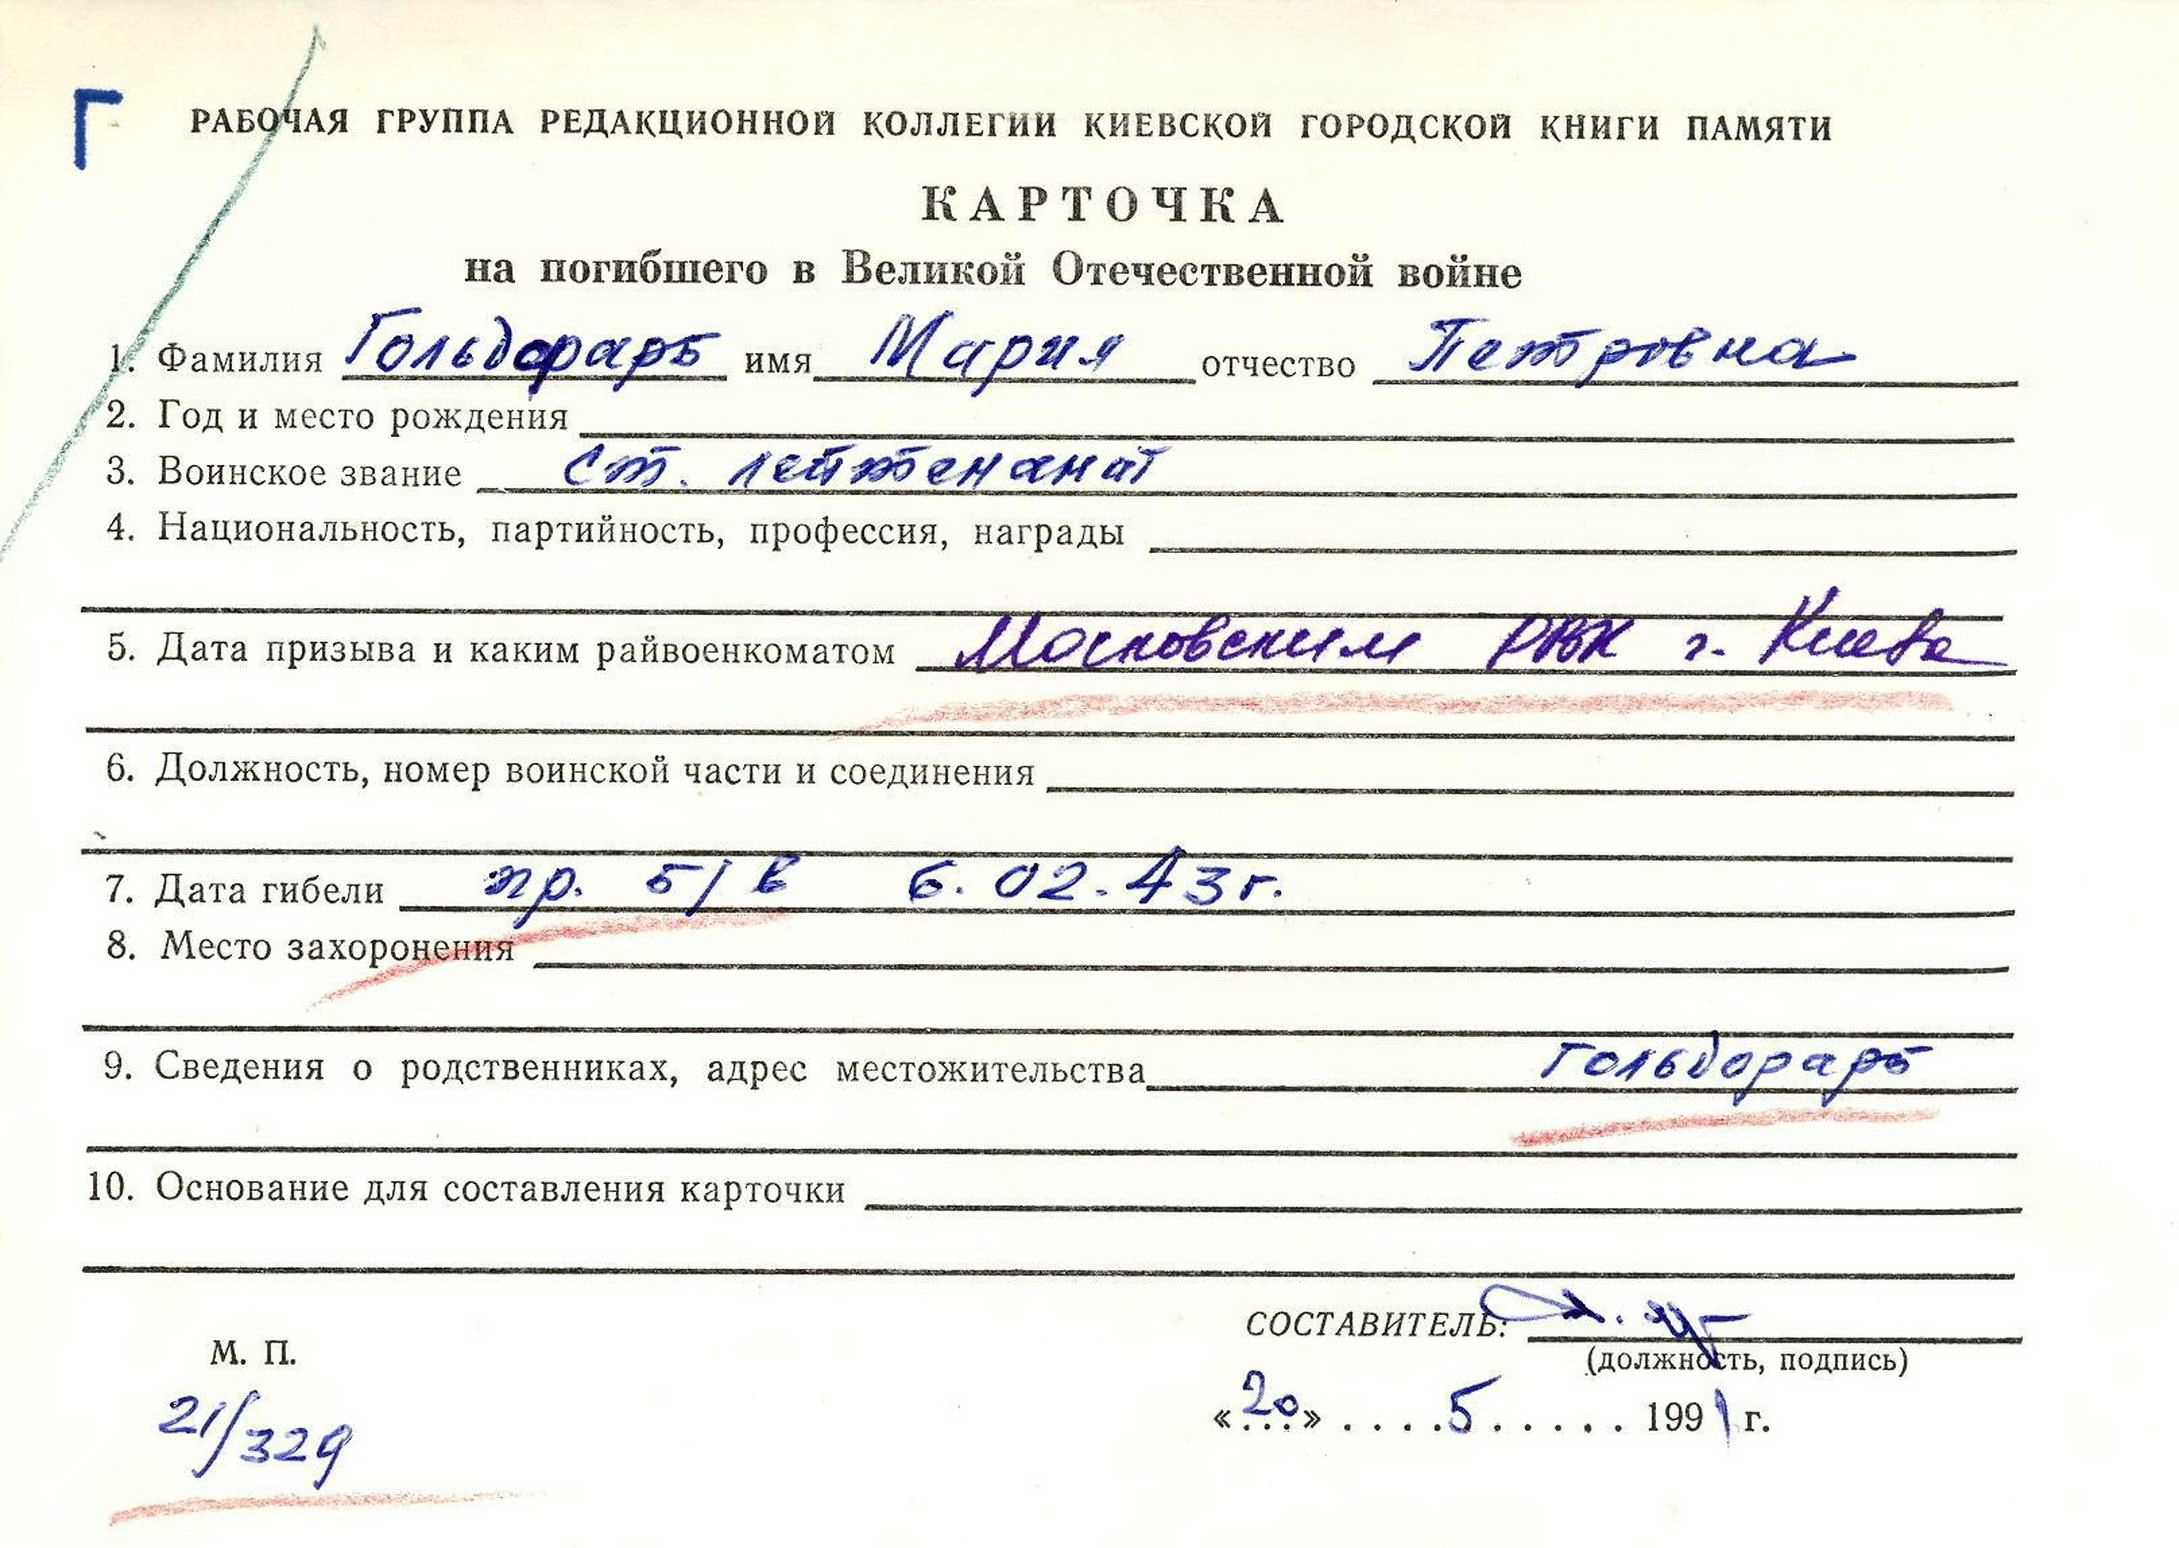 Г
РАБОЧАЯ ГРУППА РЕДАКЦИОННОЙ КОЛЛЕГИИ КИЕВСКОЙ ГОРОДСКОЙ КНИГИ ПАМЯТИ
КАРТОЧКА
на погибшего в Великой Отечественной войне
1. Фамилия Гольдфарб имя Мария отчество Петровна
2. Год и место рождения
3. Воинское звание ст. лейтенант
4. Национальность, партийность, профессия, награды
5. Дата призыва и каким райвоенкоматом Московским РВК г. Киева
6. Должность, номер воинской части и соединения
7. Дата гибели пр. б/в 6.02.43г.
8. Место захоронения
9. Сведения о родственниках, адрес местожительства Гольдорарб
10. Основание для составления карточки
СОСТАВИТЕЛЬ:
(должность, подпись)
М. П.
21/329
«20» .... 5 ..... 1991 г.